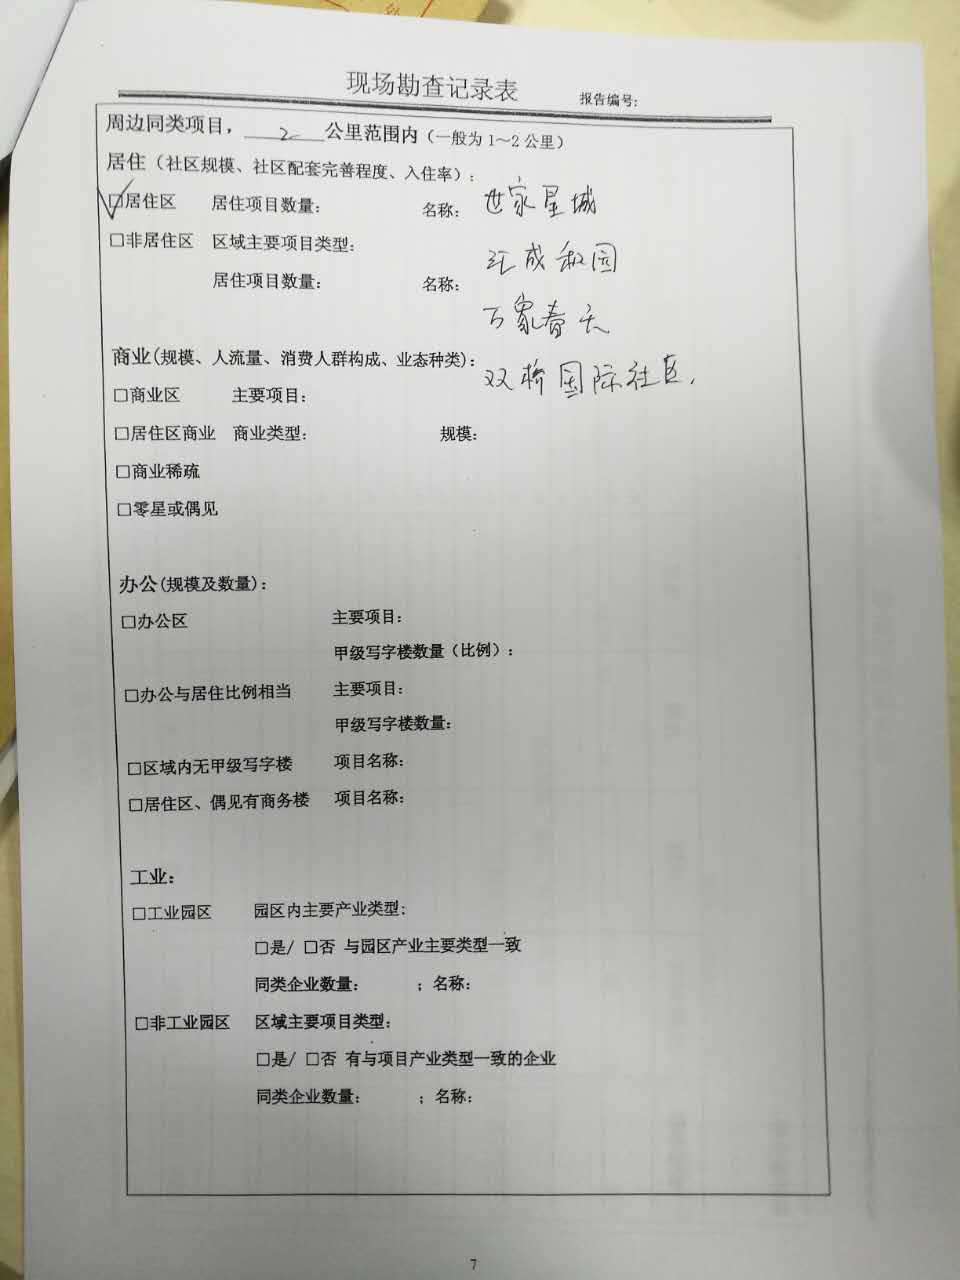 现场勘查记录表
报告编号:
周边同类项目， 2 公里范围内（一般为1～2公里）
居住（社区规模、社区配套完善程度、入住率）:
☑居住区 居住项目数量: 名称: 世家星城
□非居住区 区域主要项目类型: 汇成和园
居住项目数量: 名称:
万象春天
商业(规模、人流量、消费人群构成、业态种类):
双桥国际社区.
□商业区 主要项目:
□居住区商业 商业类型: 规模:
□商业稀疏
□零星或偶见
办公(规模及数量):
□办公区 主要项目:
甲级写字楼数量（比例）:
□办公与居住比例相当 主要项目:
甲级写字楼数量:
□区域内无甲级写字楼 项目名称:
□居住区、偶见有商务楼 项目名称:
工业:
□工业园区 园区内主要产业类型:
□是/ □否 与园区产业主要类型一致
同类企业数量: ; 名称:
□非工业园区 区域主要项目类型:
□是/ □否 有与项目产业类型一致的企业
同类企业数量: ; 名称:
7